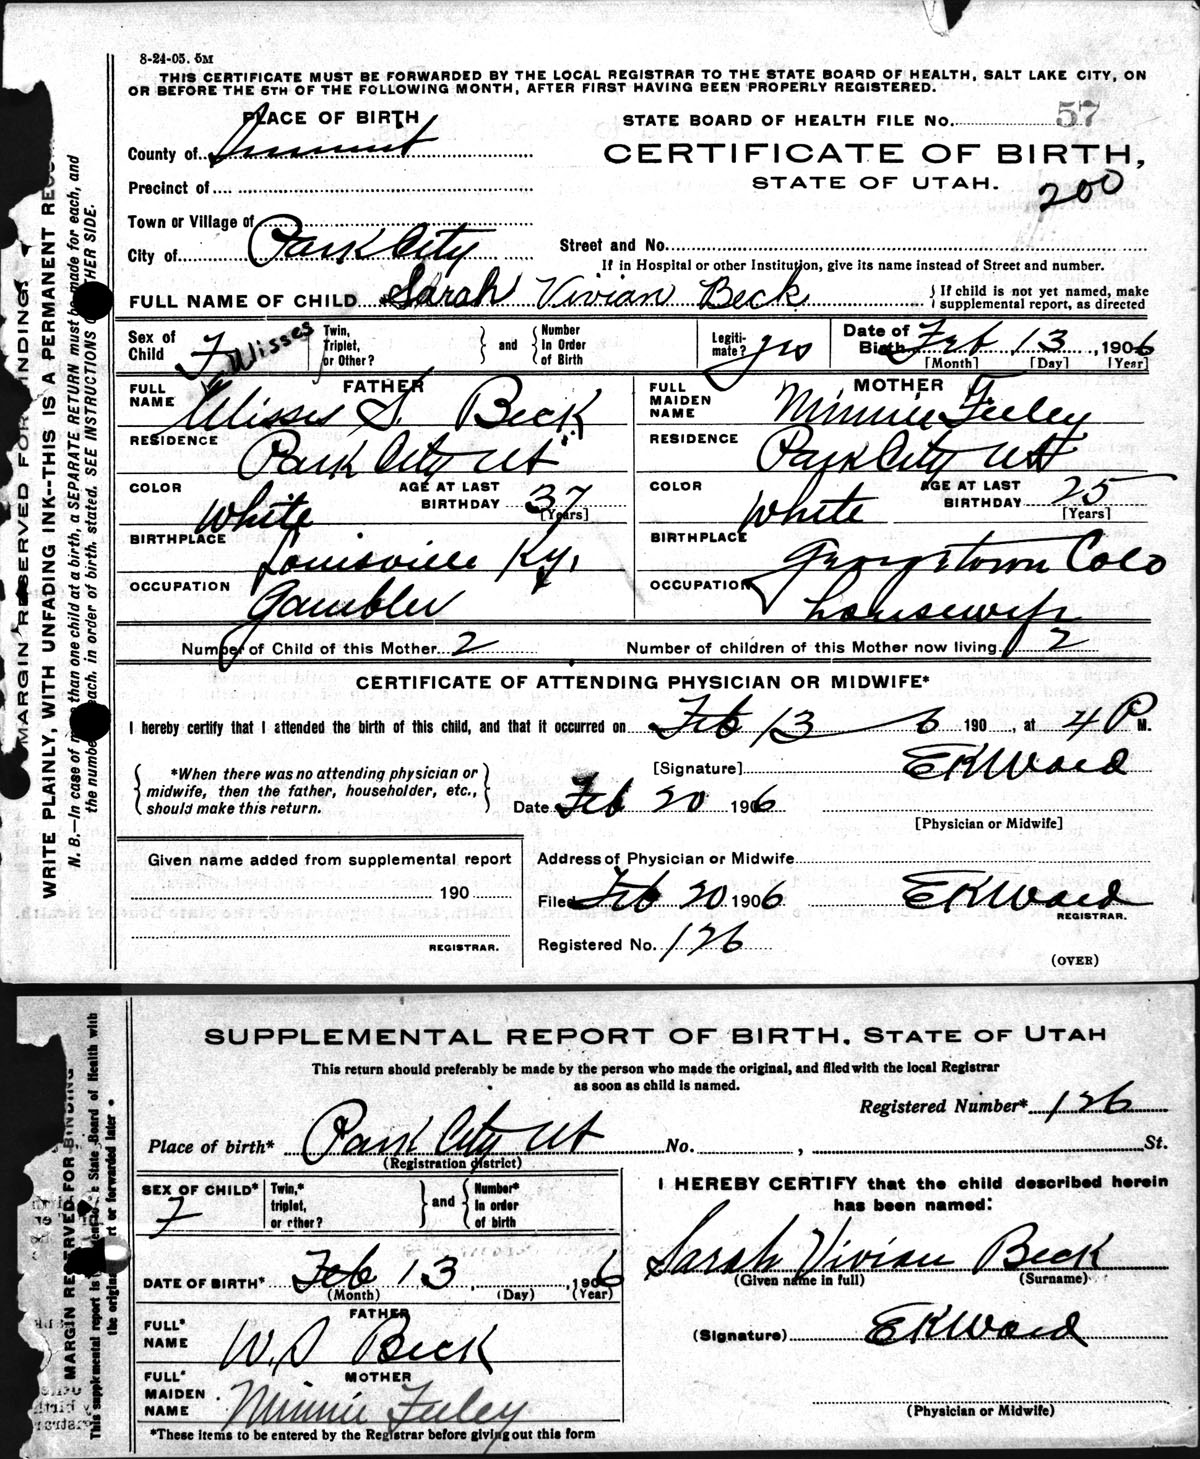 8-24-05. 5M
THIS CERTIFICATE MUST BE FORWARDED BY THE LOCAL REGISTRAR TO THE STATE BOARD OF HEALTH, SALT LAKE CITY, ON
OR BEFORE THE 5TH OF THE FOLLOWING MONTH, AFTER FIRST HAVING BEEN PROPERLY REGISTERED.
PLACE OF BIRTH
STATE BOARD OF HEALTH FILE No. 57
County of Summit
CERTIFICATE OF BIRTH,
STATE OF UTAH.
200
Precinct of
Town or Village of
City of Park City
Street and No.
If in Hospital or other Institution, give its name instead of Street and number.
FULL NAME OF CHILD Sarah Vivian Beck
If child is not yet named, make
supplemental report, as directed
Sex of Child F
Twin, Triplet, or Other?
and
Number In Order of Birth
Legitimate? yes
Date of Birth Feb 13, 1906
[Month] [Day] [Year]
Ulisses
FATHER
FULL NAME Ulisses S. Beck
RESIDENCE Park City Ut
COLOR White
AGE AT LAST BIRTHDAY 37 [Years]
BIRTHPLACE Louisville Ky.
OCCUPATION Gambler
MOTHER
FULL MAIDEN NAME Minnie Feeley
RESIDENCE Park City Ut
COLOR White
AGE AT LAST BIRTHDAY 25 [Years]
BIRTHPLACE Georgetown Colo
OCCUPATION housewife
Number of Child of this Mother 2
Number of children of this Mother now living 2
CERTIFICATE OF ATTENDING PHYSICIAN OR MIDWIFE*
I hereby certify that I attended the birth of this child, and that it occurred on Feb 13 6 190 , at 4 P M.
*When there was no attending physician or
midwife, then the father, householder, etc.,
should make this return.
[Signature] EKWard
Date Feb 20 1906
[Physician or Midwife]
Given name added from supplemental report
190
REGISTRAR.
Address of Physician or Midwife
Filed Feb 20 1906 EKWard
REGISTRAR.
Registered No. 126
(OVER)
MARGIN RESERVED FOR BINDING.
WRITE PLAINLY, WITH UNFADING INK--THIS IS A PERMANENT
N. B.—In case of than one child at a birth, a SEPARATE RETURN must be made for each, and
the number each, in order of birth, stated. SEE INSTRUCTIONS HER SIDE.
SUPPLEMENTAL REPORT OF BIRTH, STATE OF UTAH
This return should preferably be made by the person who made the original, and filed with the local Registrar
as soon as child is named.
Registered Number* 126
Place of birth* Park City Ut No. , St.
(Registration district)
SEX OF CHILD* F
Twin,* triplet, or other?
and
Number* In order of birth
I HEREBY CERTIFY that the child described herein
has been named:
Sarah Vivian Beck
(Given name in full) (Surname)
DATE OF BIRTH* Feb 13, 1906
(Month) (Day) (Year)
FATHER
FULL* NAME W.S Beck
(Signature) EKWard
MOTHER
FULL* MAIDEN NAME Minnie Feeley
(Physician or Midwife)
*These items to be entered by the Registrar before giving out this form
MARGIN RESERVED FOR BINDING
This supplemental report is State Board of Health with
the original rt or forwarded later